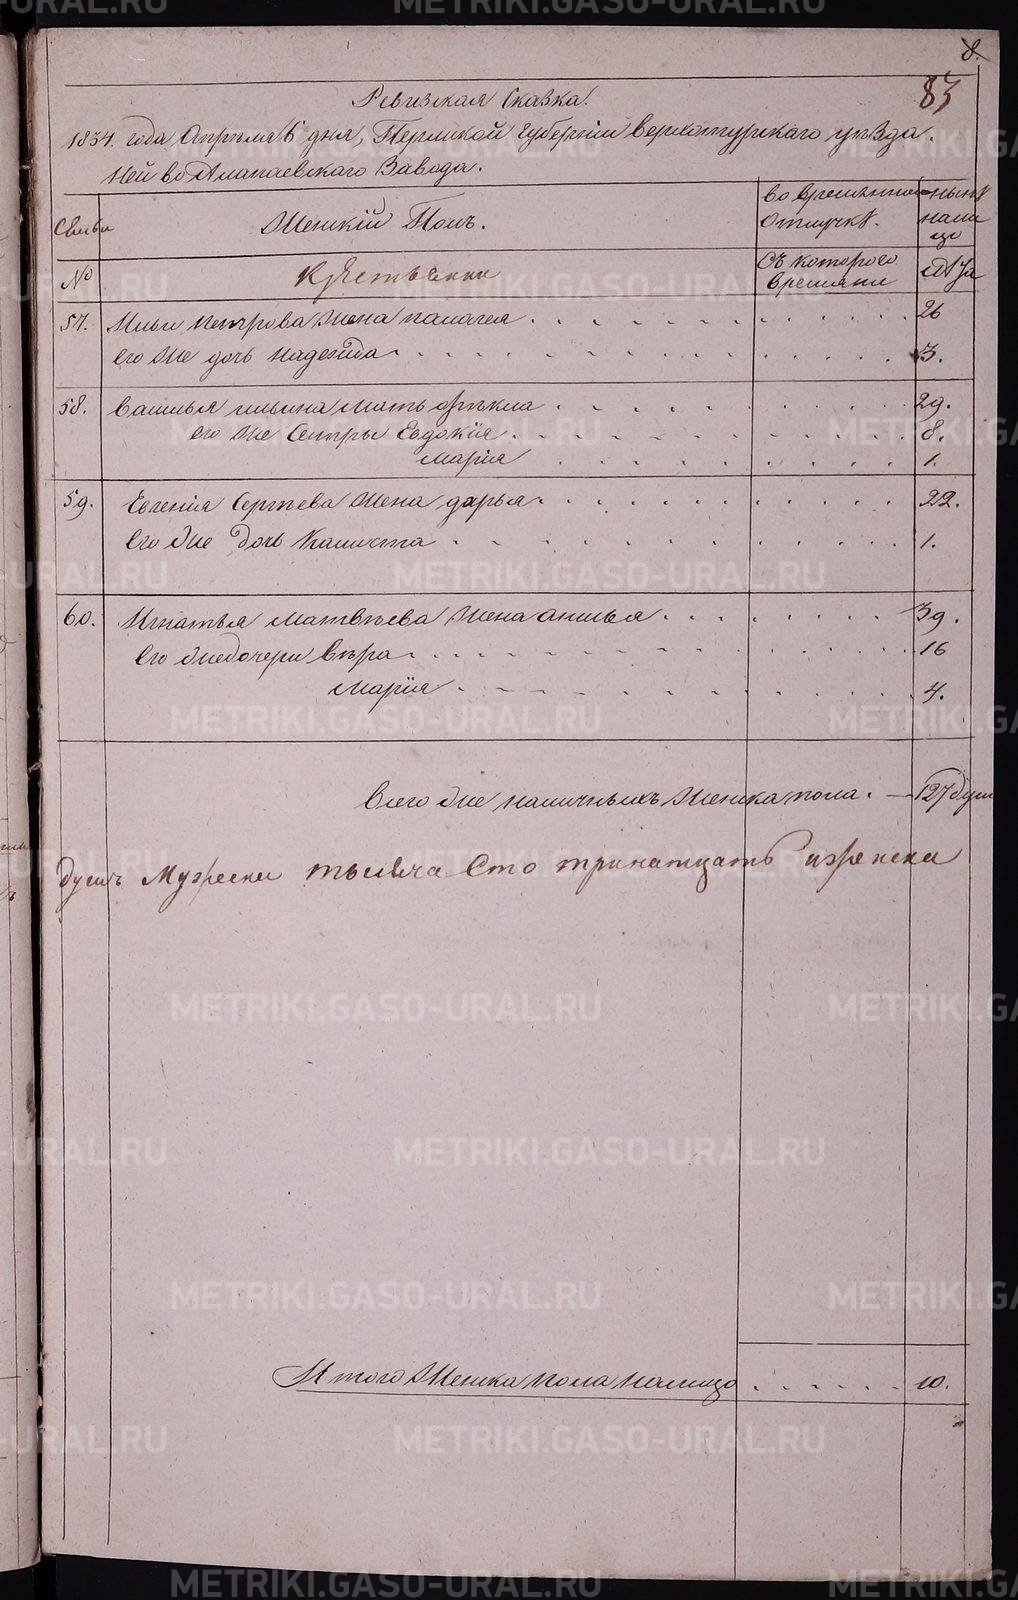 8.
83
Ревизская Сказка.
1834. года Апреля 6 дня, Пермской губернии верхотурскаго уезда.
Нейво Алапаевскаго Завода.
Семьи
Женский Полъ.
во временной отлучкѣ.
нынѣ на лицо
№
Крестьянки
Съ котораго времяни
лѣта
57. Ильи петрова Жена палагея 26
его же дочь надежда 3.
58. Василья ильина Мать фекла 29.
его же Сестры Евдокия 8.
Мария 1.
59. Евгения Сергѣева Жена дарья 22.
Его же дочь Калиста 1.
60. Игнатья Матвѣева Жена анисья 39.
Его же дочери вѣра 16
Мария 4.
всего же наличныхъ женска пола. — 127 душъ
душъ Мужески тысяча Сто тринатцать
Итого Женска пола налицо 10.
METRIKI.GASO-URAL.RU